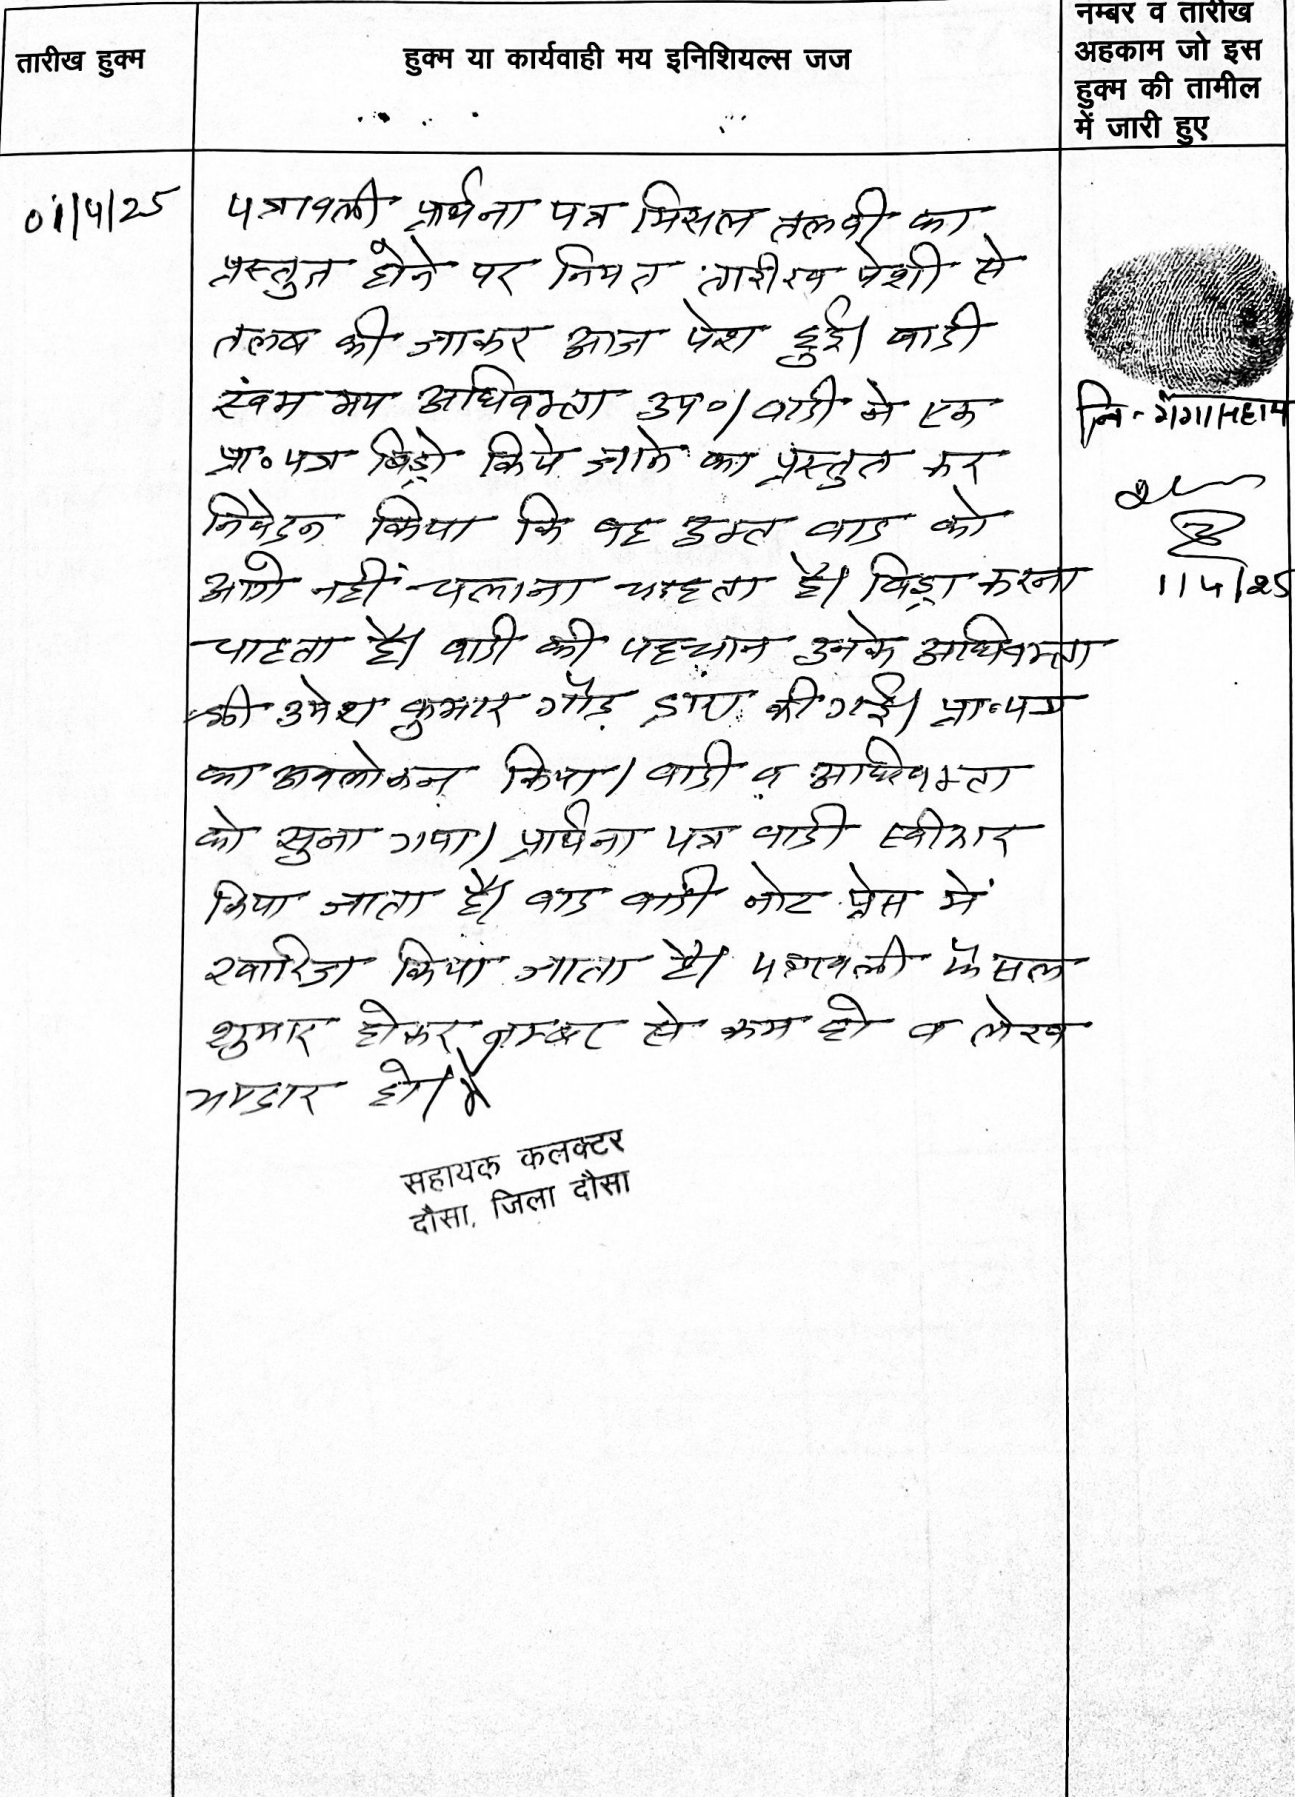 तारीख हुक्म
हुक्म या कार्यवाही मय इनिशियल्स जज
नम्बर व तारीख
अहकाम जो इस
हुक्म की तामील
में जारी हुए
01/4/25
पत्रावली प्रार्थना पत्र मिसल तलवी का
प्रस्तुत होने पर नियत तारीख पेशी से
तलब की जाकर आज पेश हुई। वादी
स्वंम मय अधिवक्ता उप०। वादी ने एक
प्रा० पत्र विड्रो किये जाने का प्रस्तुत कर
निवेदन किया कि वह उक्त वाद को
आगे नहीं चलाना चाहता है। विड्रा करना
चाहता है। वादी की पहचान उनके अधिवक्ता
श्री उमेश कुमार गौड़ द्वारा की गई। प्रा०पत्र
का अवलोकन किया। वादी व अधिवक्ता
को सुना गया। प्रार्थना पत्र वादी स्वीकार
किया जाता है। वाद वादी नोट प्रेस में
खारिज किया जाता है। पत्रावली फैसल
शुमार होकर नम्बर से कम हो व लेख
भण्डार हो।
सहायक कलक्टर
दौसा, जिला दौसा
नि - गंगासहाय
1/4/25